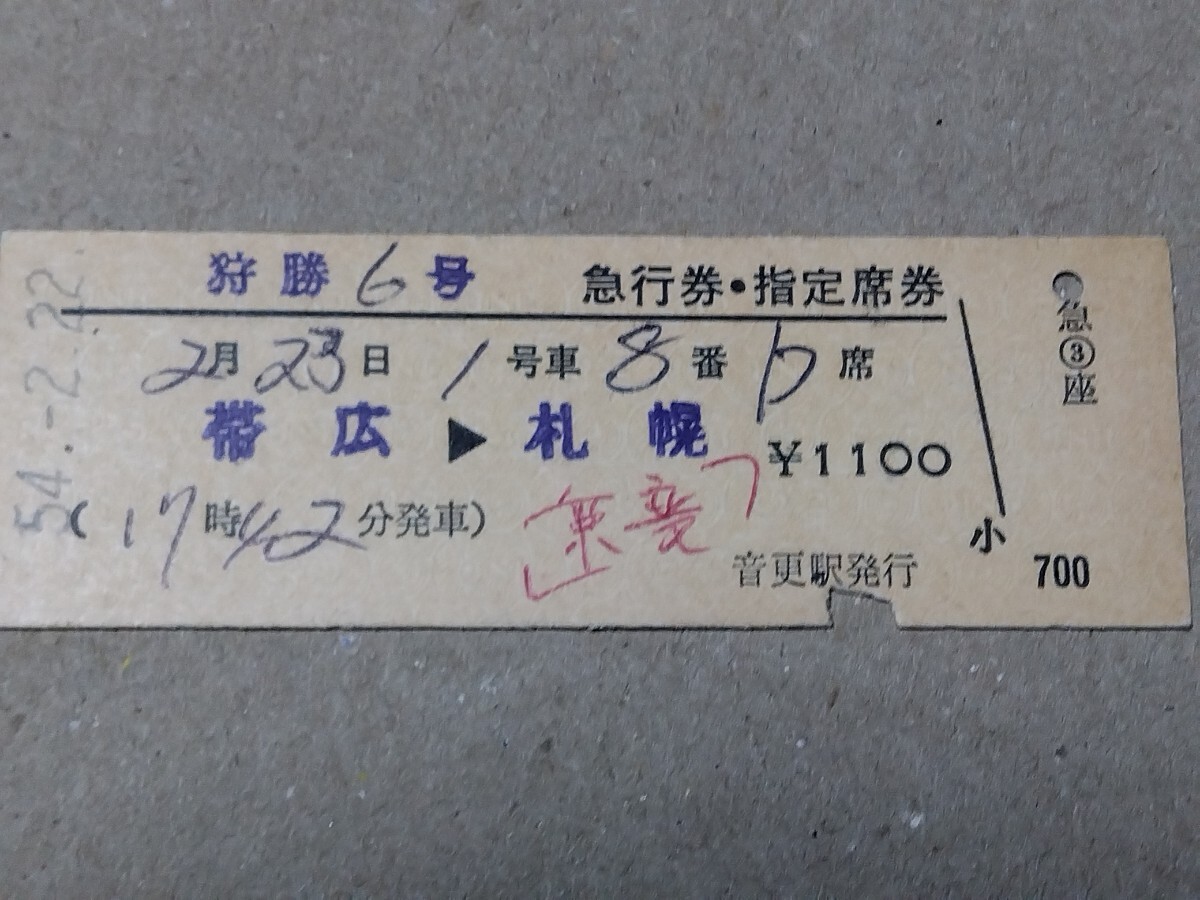 狩勝6号 急行券・指定席券
2月23日 1号車8番D席
帯広▶札幌 ¥1100
(17時42分発車)
音更駅発行
小
急③座
700
54.-2.22